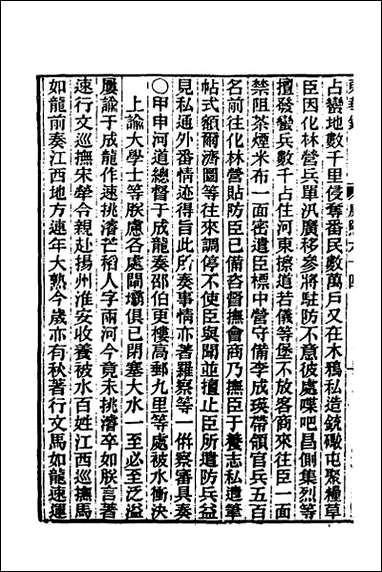 占蠻地數千里侵奪番民數萬戶又在木鴉私造銃礮屯聚糧草
臣因化林營兵單汛廣移參將駐防不意彼處喋吧昌側集烈等
擅發蠻兵數千占住河東擦道若儀等堡不放客商來往臣一面
禁阻茶煙米布一面密遣臣標中營守備李成瑛帶領官兵五百
名前往化林營貼防臣已備咨督撫會商乃撫臣于養志私遣筆
帖式額爾濟圖等往來調停不使臣與聞並擅止臣所遣防兵益
見私通外番情迹得旨此所奏事情亦著羅察等一併察審具奏
○甲申河道總督于成龍奏邵伯更樓高郵九里等處被水衝決
上諭大學士等朕慮各處閘壩俱已閉塞大水一至必至泛溢
屢諭于成龍作速挑濬芒稻人字兩河今竟未挑濬卒如朕言著
速行文巡撫宋犖令親赴揚州淮安收養被水百姓江西巡撫馬
如龍前奏江西地方連年大熟今歲亦有秋著行文馬如龍速運